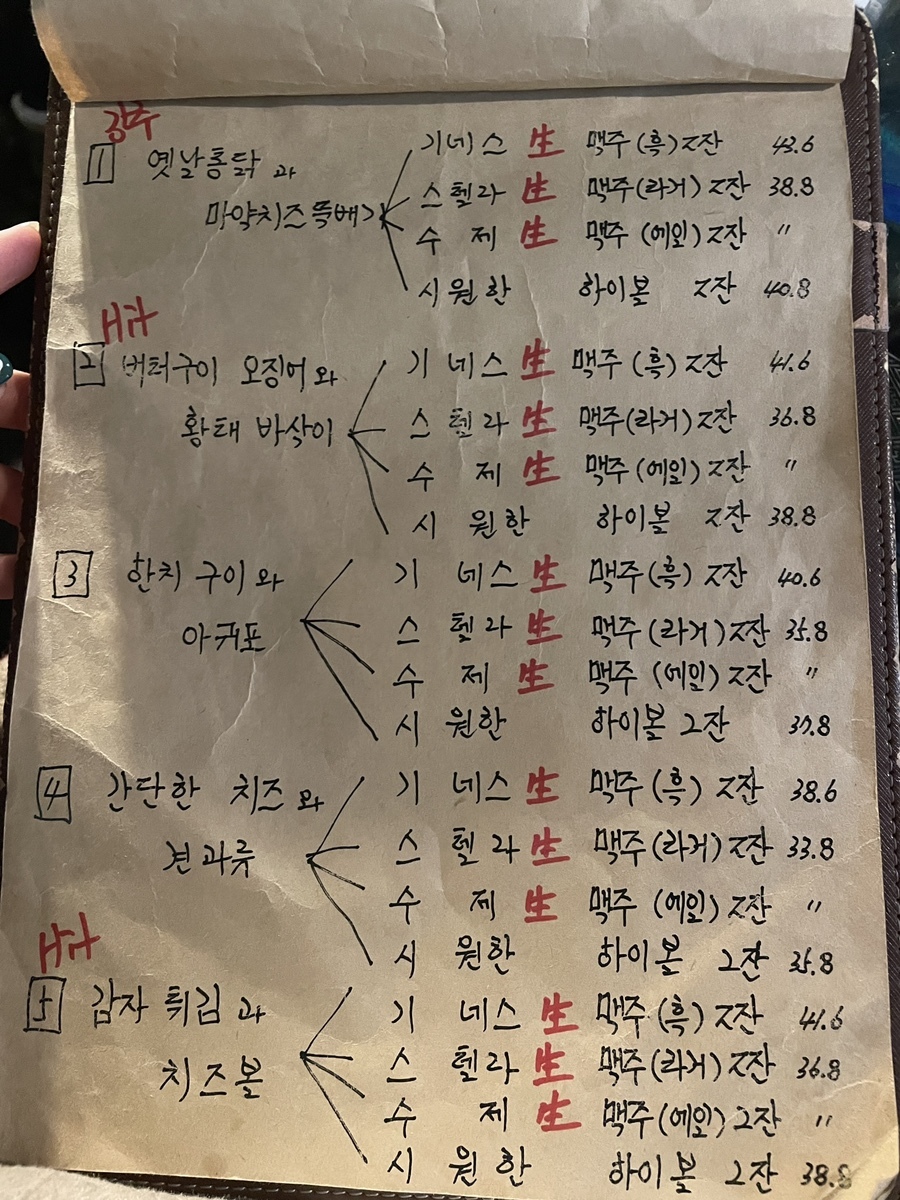 강추
1 옛날통닭과 기네스 生 맥주(흑) 2잔 43.6
마약치즈뚝배기 스텔라 生 맥주(라거) 2잔 38.8
수제 生 맥주 (에일) 2잔 〃
시원한 하이볼 2잔 40.8
Hit
2 버터구이 오징어와 기네스 生 맥주 (흑) 2잔 41.6
황태 바삭이 스텔라 生 맥주(라거) 2잔 36.8
수제 生 맥주(에일) 2잔 〃
시원한 하이볼 2잔 38.8
3 한치 구이와 기네스 生 맥주(흑) 2잔 40.6
아귀포 스텔라 生 맥주(라거) 2잔 35.8
수제 生 맥주 (에일) 2잔 〃
시원한 하이볼 2잔 37.8
4 간단한 치즈와 기네스 生 맥주(흑) 2잔 38.6
견과류 스텔라 生 맥주(라거) 2잔 33.8
수제 生 맥주 (에일) 2잔 〃
시원한 하이볼 2잔 35.8
Hit
5 감자 튀김과 기네스 生 맥주(흑) 2잔 41.6
치즈볼 스텔라 生 맥주(라거) 2잔 36.8
수제 生 맥주(에일) 2잔 〃
시원한 하이볼 2잔 38.8